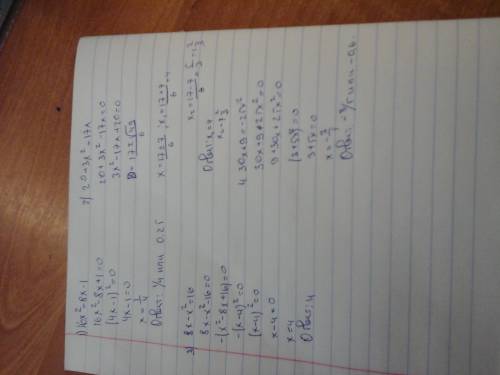 1) 16x²-8x-1
16x²-8x+1=0
(4x-1)²=0
4x-1=0
x=1/4
Ответ: 1/4 или 0.25
2) 20+3x²=17x
20+3x²-17x=0
3x²-17x+20=0
x=17±7/6; x₁=17+7/6=4
x₂=17-7/6=5/3=1 2/3
Ответ: x₁=4
3) 8x-x²=16
8x-x²-16=0
-(x²-8x+16)=0
-(x-4)²=0
(x-4)²=0
x-4=0
x=4
Ответ: 4
4. 30x+9=-25x²
30x+9+25x²=0
9+30x+25x²=0
(3+5x)²=0
3+5x=0
x=-3/5
Ответ: -3/5 или -0,6.